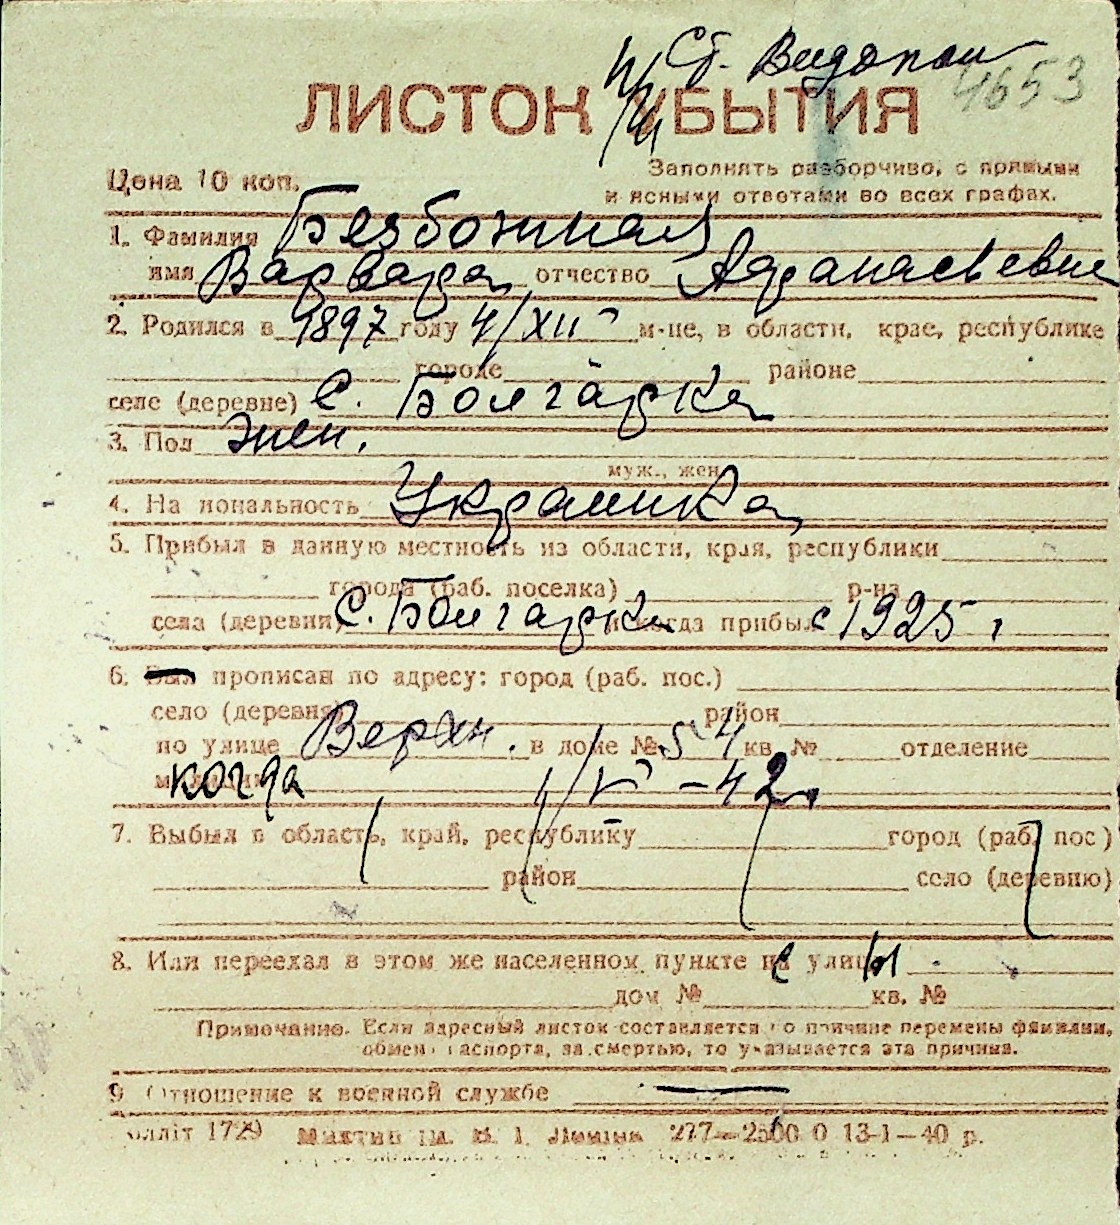 Ст. Водопой
4653
ЛИСТОК УБЫТИЯ
Цена 10 коп.
Заполнять разборчиво, с прямыми
и ясными ответами во всех графах.
1. Фамилия Безбожная
имя Варвара отчество Афанасьевна
2. Родился в 1897 году 4/XII м-це, в области, крае, республике
городе районе
селе (деревне) с. Болгарка
3. Пол жен.
муж., жен.
4. Национальность Украинка
5. Прибыл в данную местность из области, края, республики
города (раб. поселка) р-на
села (деревни) с. Болгарка и когда прибыл с 1925 г
6. Был прописан по адресу: город (раб. пос.)
село (деревня) район
по улице Верхн. в доме № 54 кв. № отделение
когда 1/V - 42
7. Выбыл в область, край, республику город (раб. пос.)
район село (деревню)
8. Или переехал в этом же населенном пункте с улицы
дом № кв. №
Примечание. Если адресный листок составляется по причине перемены фамилии,
обмена паспорта, за смертью, то указывается эта причина.
9 Отношение к военной службе
1729 277—2500 0 13-1—40 р.